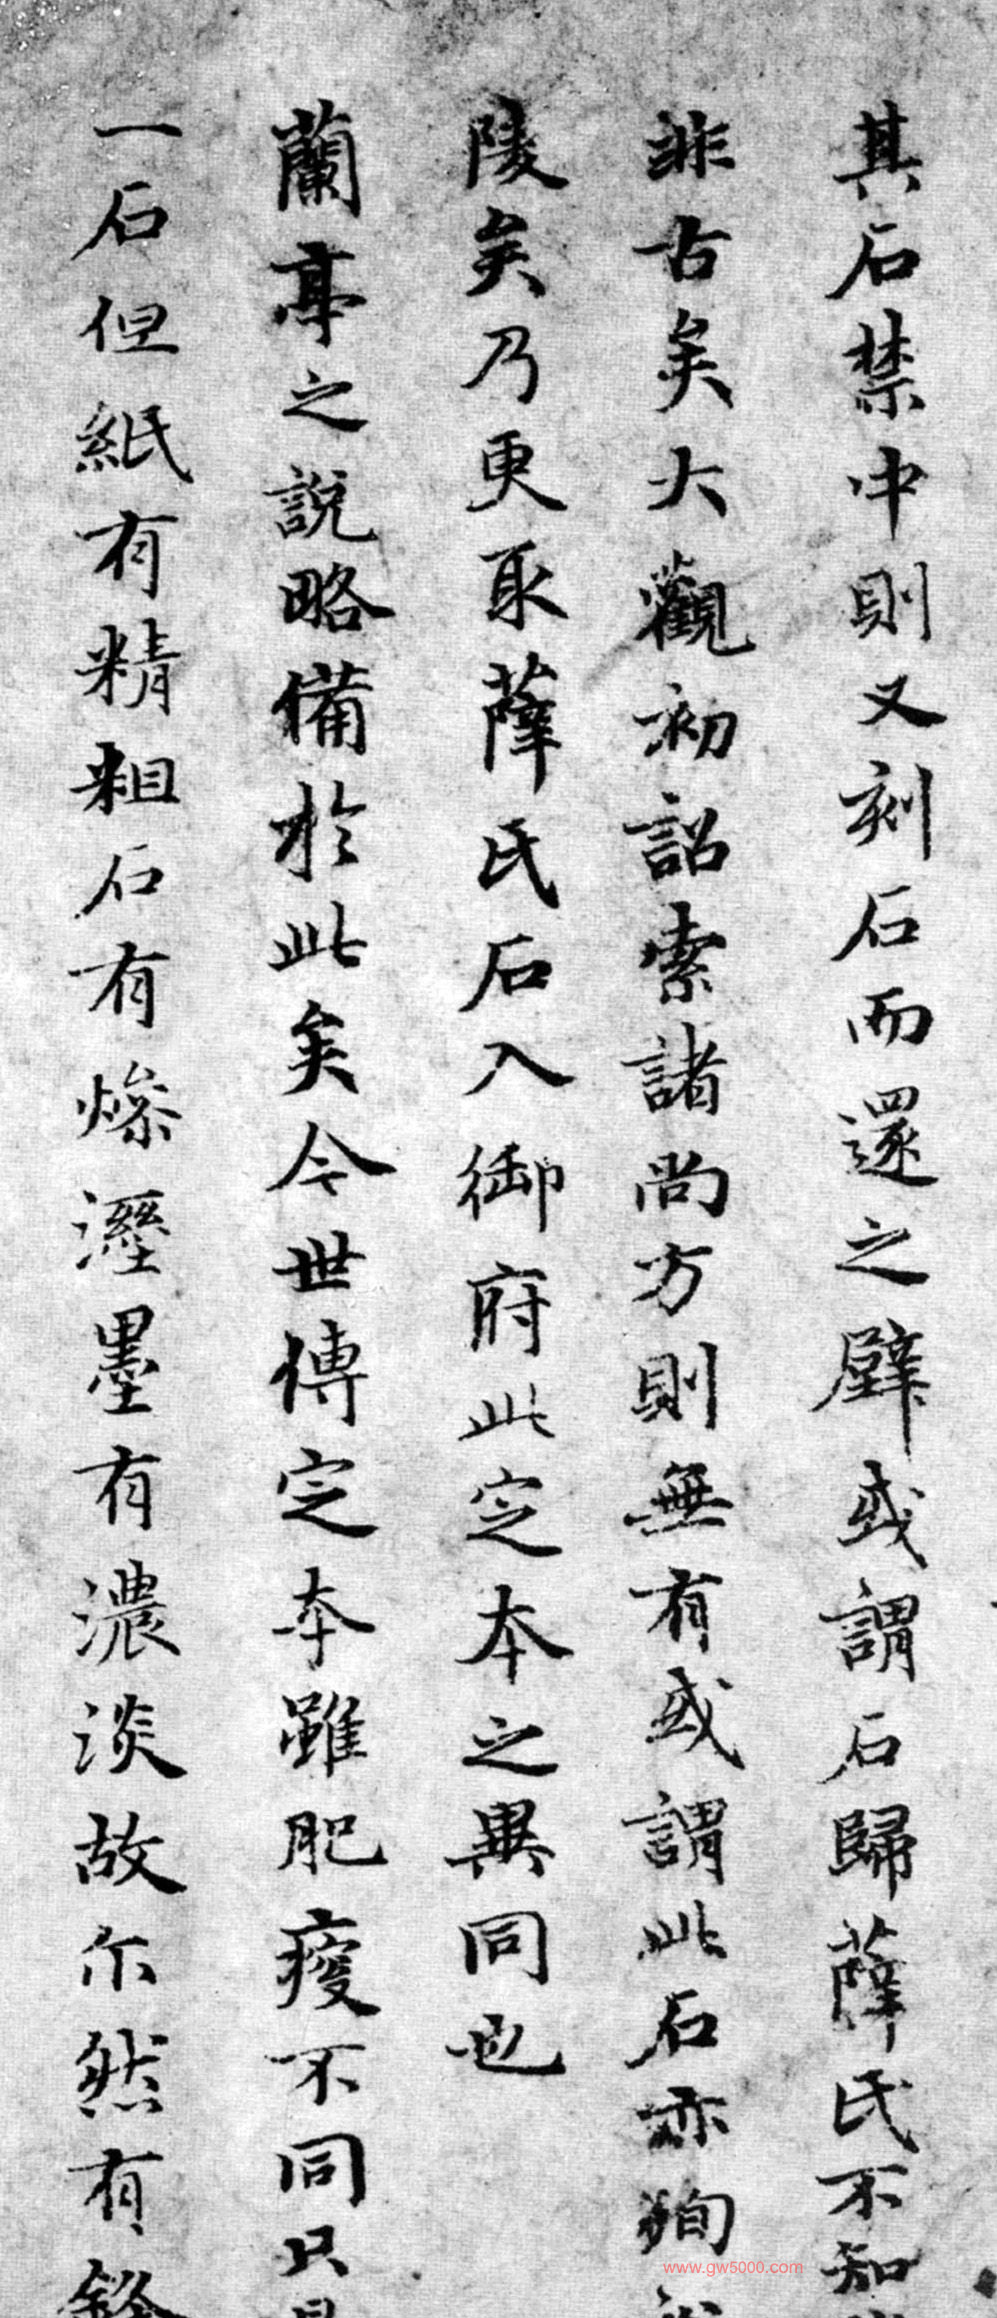 其石禁中則又刻石而還之壁或謂石歸薛氏不知
非古矣大觀初詔索諸尚方則無有或謂此石亦殉
陵矣乃更取薛氏石入御府此定本之異同也
蘭亭之說略備於此矣今世傳定本雖肥瘦不同只是
一石但紙有精粗石有燥溼墨有濃淡故尔然有鋒
www.gw5000.com